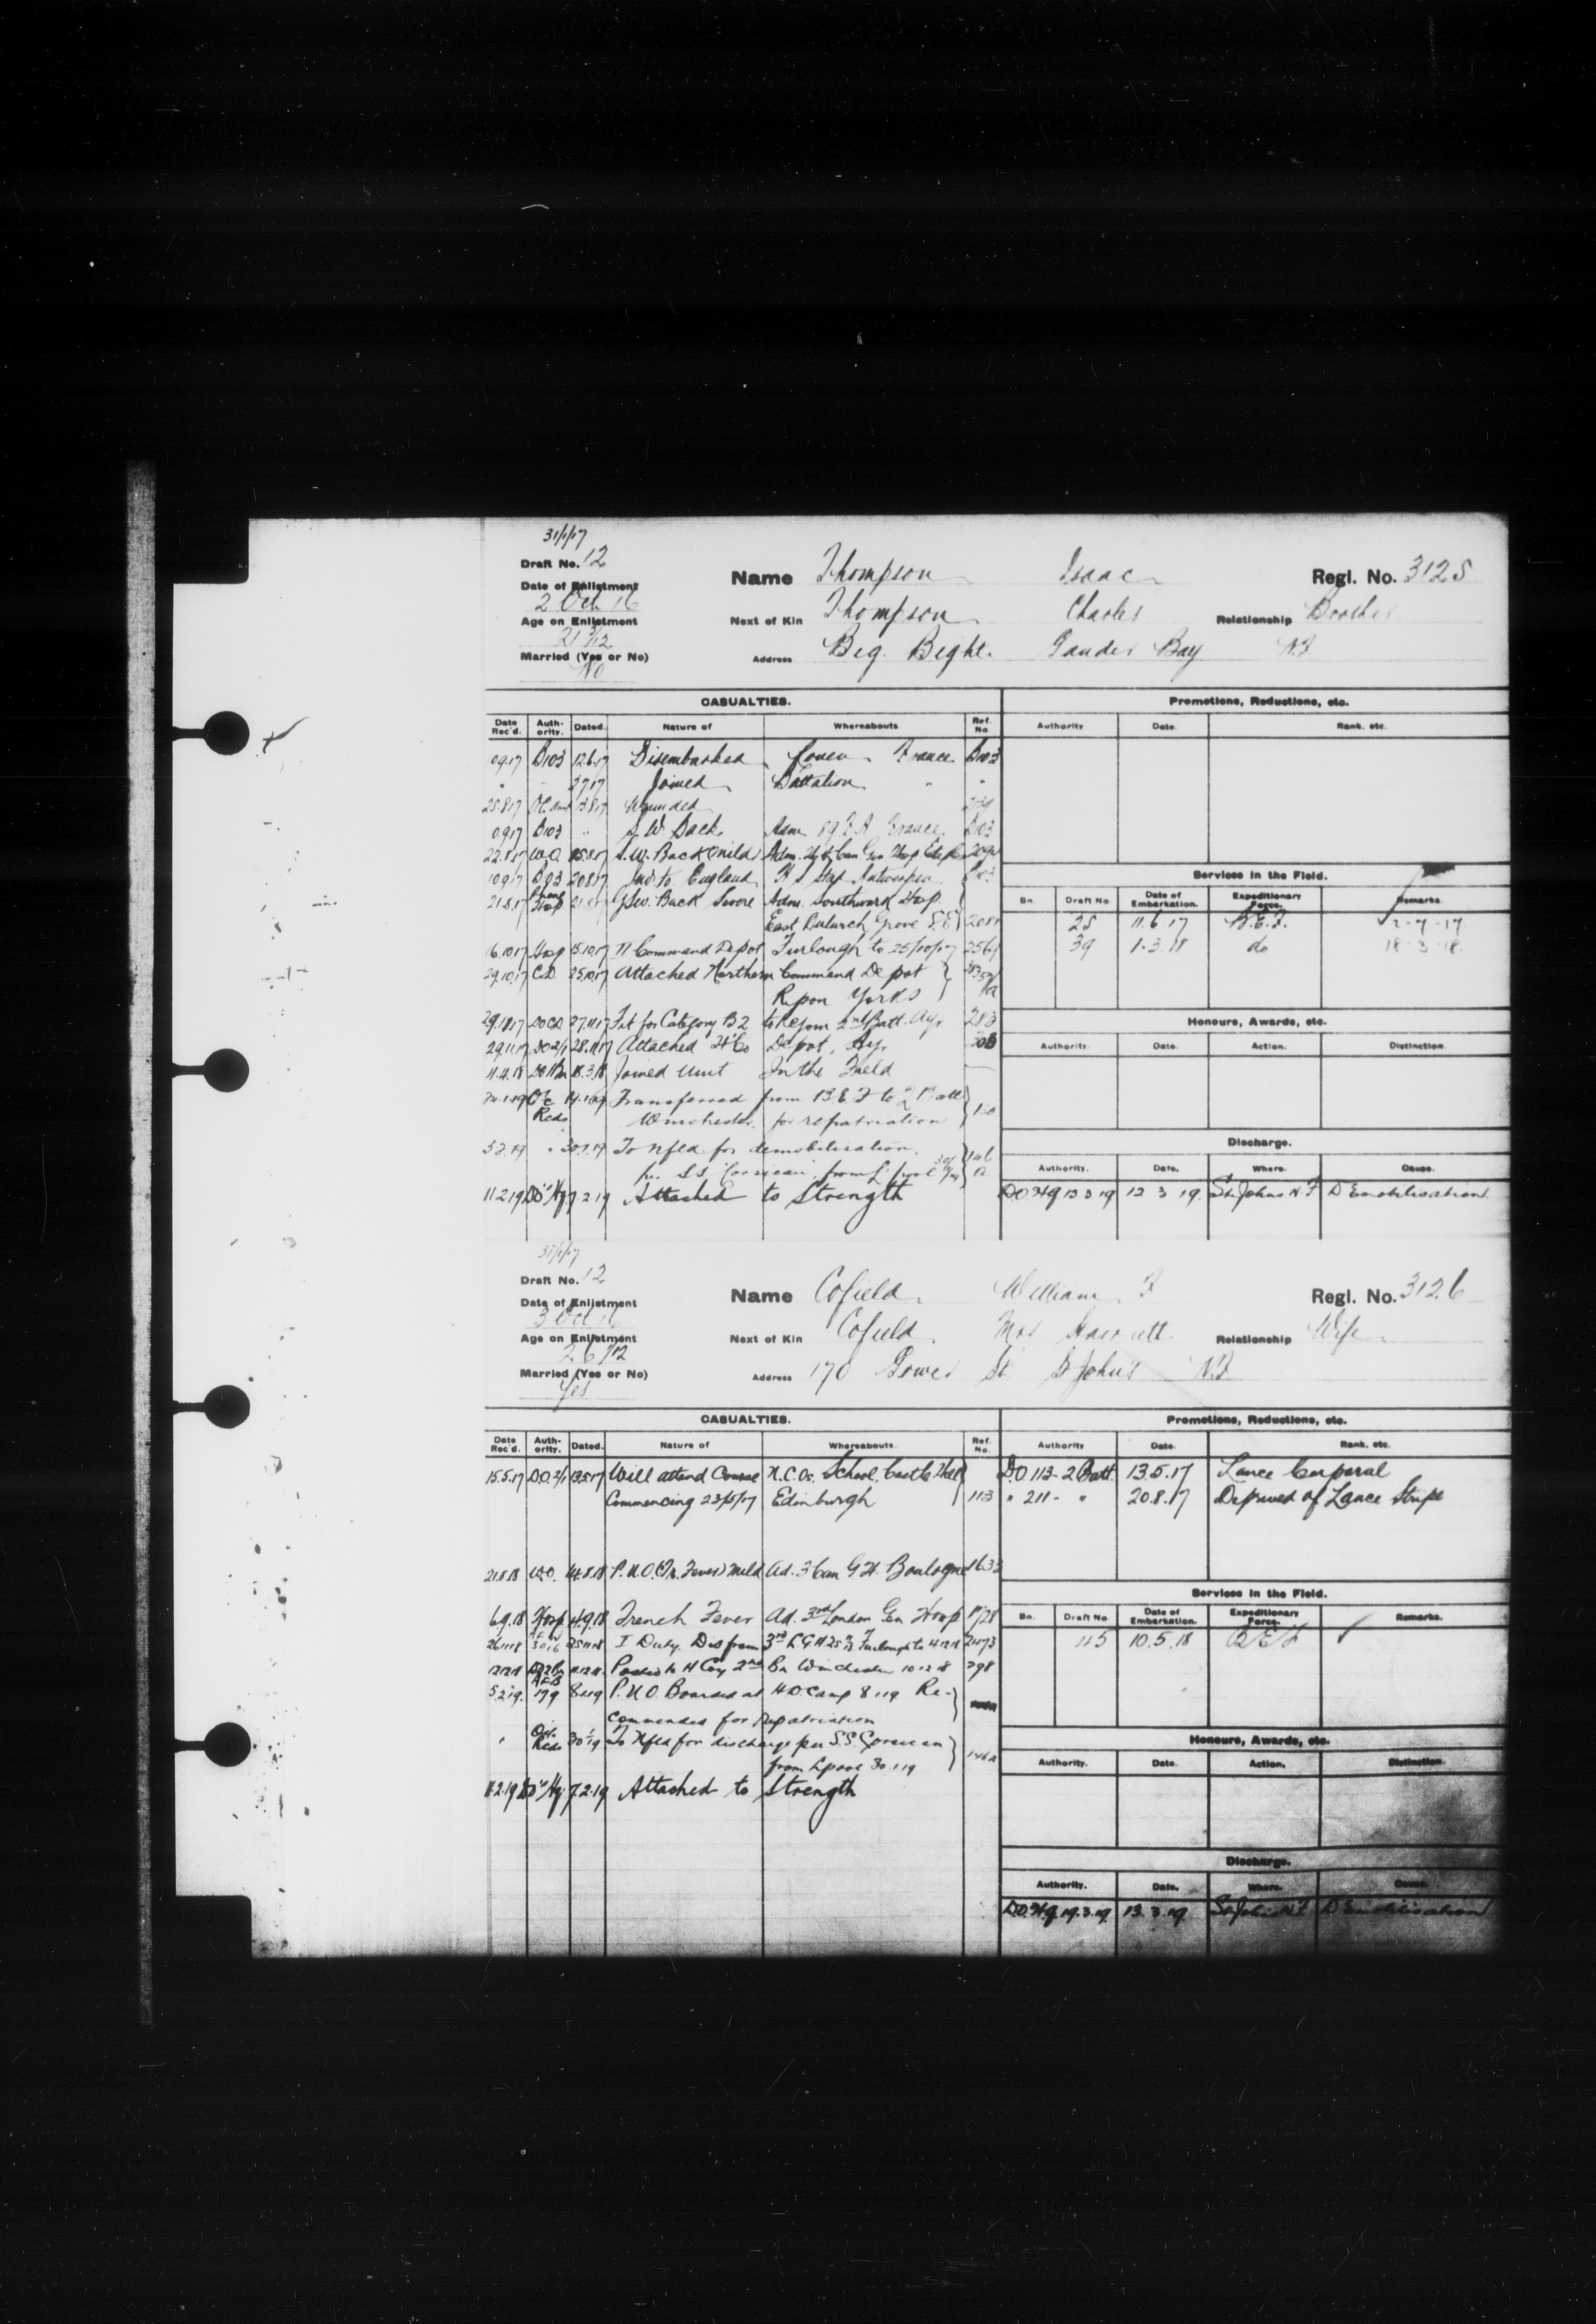 31/1/17
Draft No. 12
Date of Enlistment
2 Oct 16
Age on Enlistment
Married (Yes or No)
No
Name Thompson Isaac Regl. No. 3125
Next of Kin Thompson Charles Relationship Brother
Address Beg. Bight. Gander Bay N.F
CASUALTIES.
Date Rec'd. Auth-ority. Dated. Nature of Whereabouts Ref. No.
B103 12.6.17 Disembarked Rouen France B103
" 2.7.17 Joined Battalion " "
25.8.17 13.8.17 Wounded
B103 " S.W. Back Adm 89 F.A France B103
22.8.17 W.O. 15.8.17 S.W. Back (mild) Adm. Can Gen Hosp
10.9.17 B103 20.8.17 Inv. to England H S Ship Antwerpen B103
21.8.17 Hosp G.S.W. Back Severe Adm. Southwark Hosp.
East Dulwich Grove S.E. 2081
16.10.17 Hosp 15.10.17 N Command Depot Furlough to 25/10/17 2561
29.10.17 C.D 25.10.17 Attached Northern Command Depot
Ripon Yorks
29.11.17 DOCD 27.11.17 Fit for Category B2 to Rejoin 2nd Batt. Ayr 283
29.11.17 DO2/1 28.11.17 Attached H Co Depot, Ayr
11.4.18 18.3.18 Joined Unit In the Field
24.1.19 O/c Rcds 14.1.19 Transferred from B.E.F to 2 Batt
Winchester, for repatriation
5.2.19 " 30.1.19 To Nfld for demobilisation,
per S.S. "Corsican" from L'pool 146 a
11.2.19 DO Hq 7.2.19 Attached to Strength
Promotions, Reductions, etc.
Authority Date. Rank, etc.
Services in the Field.
Bn. Draft No Date of Embarkation. Expeditionary Force. Remarks.
25 11.6.17 B.E.F. 2-7-17
39 1.3.18 do 18-3-18
Honours, Awards, etc.
Authority. Date. Action. Distinction.
Discharge.
Authority. Date. Where. Cause.
D.O.Hq 13 3 19 12 3 19. St. Johns N F DEmobilisation
31/1/17
Draft No. 12
Date of Enlistment
3 Oct 16
Age on Enlistment
26 7/12
Married (Yes or No)
Yes
Name Cofield. William. F Regl. No. 3126
Next of Kin Cofield. Mrs Harriett. Relationship Wife
Address 170 Gower St St John's N.F
CASUALTIES.
Date Rec'd. Auth-ority. Dated. Nature of Whereabouts. Ref. No.
15.5.17 D.O.2/1 13.5.17 Will attend Course N.C.Os. School, Castle Hill
Commencing 23/5/17 Edinburgh 113
21.8.18 W.O. 14.8.18 P.U.O. (Tr. Fever) mild Ad. 3 Can G.H. Boulogne 1633
6.9.18 Hosp 4.9.18 Trench Fever Ad. 3rd London Gen Hosp 1728
26.11.18 25.11.18 I Duty. Dis from 3rd L G H 25th Furlough to 4.12.18 2473
12.12.18 11.12.18. Posted to H Coy 2nd Bn Winchester 10 12 8 298
5.2.19. A.F.B 179 8.1.19 P.U.O. Boarded at H.D Camp 8 1 19 Re-
commended for Repatriation
" Off. Rcds 30.1.19 To Nfld for discharge per S.S. Corsican
from Lpool 30.1.19 146a
11.2.19 DO Hq. 7.2.19 Attached to Strength
Promotions, Reductions, etc.
Authority Date. Rank, etc.
D.O 113-2 Batt. 13.5.17 Lance Corporal
" 211- " 20.8.17 Deprived of Lance Stripe
Services in the Field.
Bn. Draft No Date of Embarkation. Expeditionary Force. Remarks.
45 10.5.18 B E F
Honours, Awards, etc.
Authority. Date. Action. Distinction.
Discharge.
Authority. Date. Where. Cause.
D.O.Hq. 19.3.19. 13.3.19. St John's N F DEmobilisation